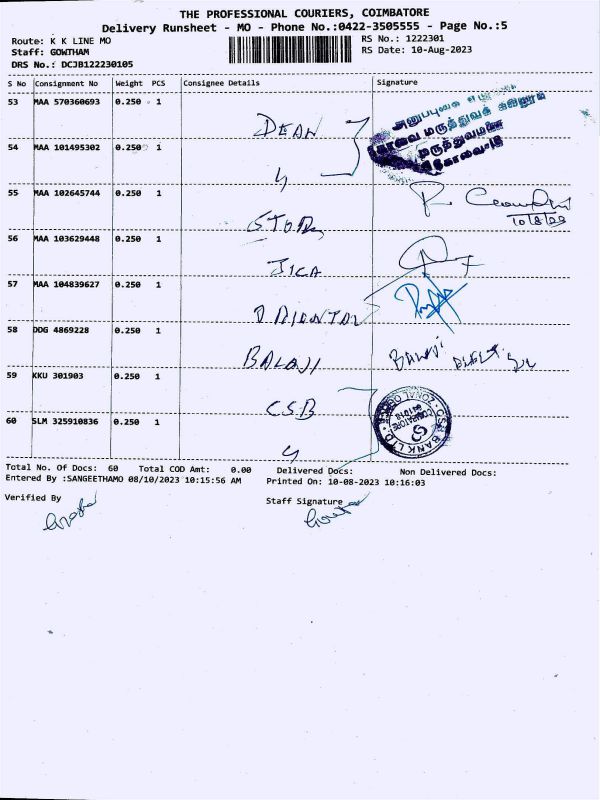 THE PROFESSIONAL COURIERS, COIMBATORE
Delivery Runsheet - MO - Phone No.:0422-3505555 - Page No.:5
Route: K K LINE MO
RS No.: 1222301
Staff: GOWTHAM
RS Date: 10-Aug-2023
DRS No.: DCJB122230105
S No Consignment No Weight PCS Consignee Details Signature
53 MAA 570360693 0.250 1
DEAN
கோவை மருத்துவக்
மருத்துவமனை
54 MAA 101495302 0.250 1
55 MAA 102645744 0.250 1
10/8/23
56 MAA 103629448 0.250 1
JICA
57 MAA 104839627 0.250 1
ORIENTAL
58 DDG 4869228 0.250 1
BALAJI
BALAJI
59 KKU 301903 0.250 1
CSB
CSB BANK LTD.
COIMBATORE
60 SLM 325910836 0.250 1
Total No. Of Docs: 60 Total COD Amt: 0.00 Delivered Docs: Non Delivered Docs:
Entered By :SANGEETHAMO 08/10/2023 10:15:56 AM Printed On: 10-08-2023 10:16:03
Verified By
Staff Signature